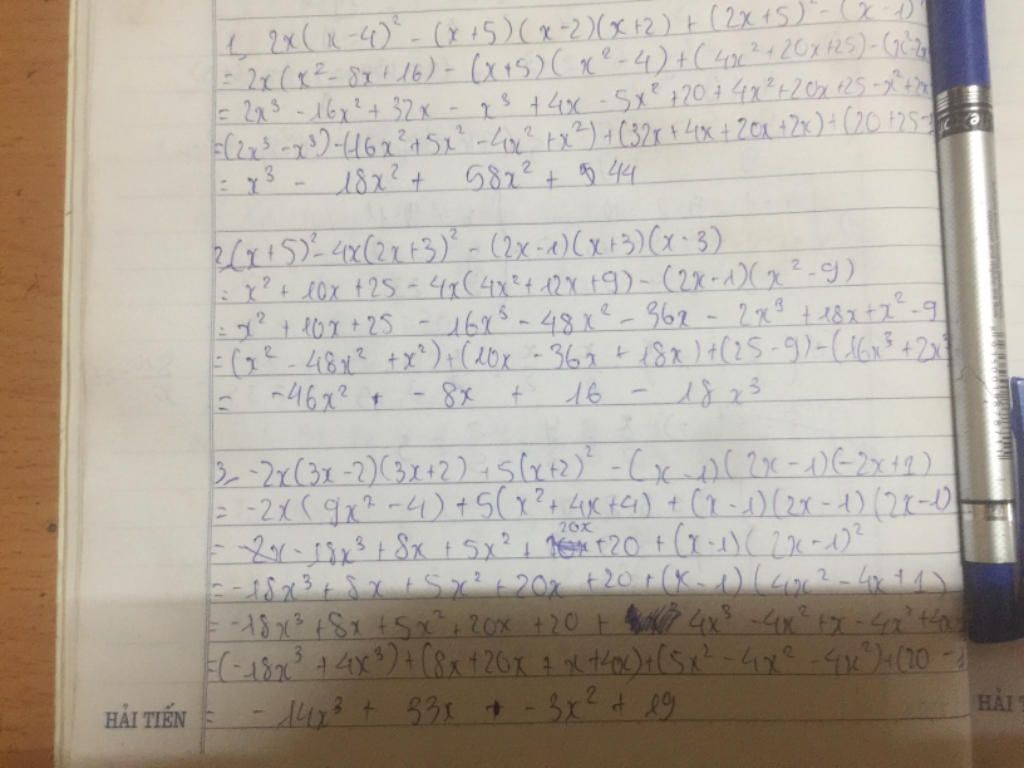 1, 2x(x-4)² - (x+5)(x-2)(x+2) + (2x+5)² - (x-1)²
= 2x(x² - 8x + 16) - (x+5)(x² - 4) + (4x² + 20x + 25) - (x² - 2x
= 2x³ - 16x² + 32x - x³ + 4x - 5x² + 20 + 4x² + 20x + 25 - x² + 2x
= (2x³ - x³) - (16x² + 5x² - 4x² + x²) + (32x + 4x + 20x + 2x) + (20 + 25 -
= x³ - 18x² + 58x² + 44
2, (x+5)² - 4x(2x+3)² - (2x-1)(x+3)(x-3)
= x² + 10x + 25 - 4x(4x² + 12x + 9) - (2x-1)(x² - 9)
= x² + 10x + 25 - 16x³ - 48x² - 36x - 2x³ + 18x + x² - 9
= (x² - 48x² + x²) + (10x - 36x + 18x) + (25 - 9) - (16x³ + 2x³
= -46x² + - 8x + 16 - 18x³
3, -2x(3x-2)(3x+2) + 5(x+2)² - (x-1)(2x-1)(-2x+1)
= -2x(9x² - 4) + 5(x² + 4x + 4) + (x-1)(2x-1)(2x-1)
= -2x - 18x³ + 8x + 5x² + 20x + 20 + (x-1)(2x-1)²
= -18x³ + 8x + 5x² + 20x + 20 + (x-1)(4x² - 4x + 1)
= -18x³ + 8x + 5x² + 20x + 20 + 4x³ - 4x² + x - 4x² + 4x
= (-18x³ + 4x³) + (8x + 20x + x + 4x) + (5x² - 4x² - 4x²) + (20 - 1
= - 14x³ + 33x + - 3x² + 19
HẢI TIẾN
HẢI T